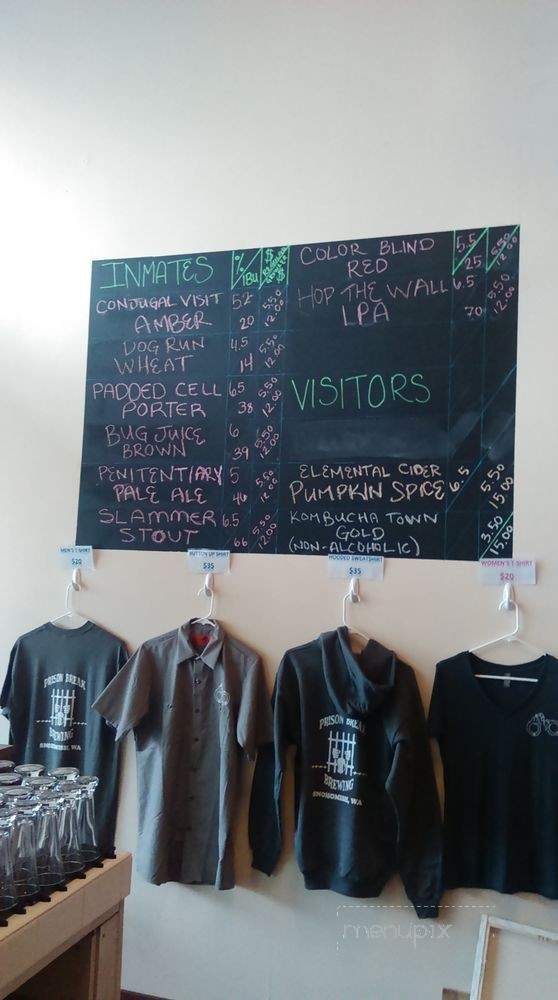 INMATES % IBU $ REGULAR GROWLER $
CONJUGAL VISIT 5.2 5.50
AMBER 20 12.00
DOG RUN 4.5 5.50
WHEAT 14 12.00
PADDED CELL 6.5 5.50
PORTER 38 12.00
BUG JUICE 6 5.50
BROWN 39 12.00
PENITENTIARY 5 5.50
PALE ALE 46 12.00
SLAMMER 6.5 5.50
STOUT 66 12.00
COLOR BLIND 5.5 5.50
RED 25 12.00
HOP THE WALL 6.5 5.50
IPA 70 12.00
VISITORS
ELEMENTAL CIDER
PUMPKIN SPICE 6.5 5.50 15.00
KOMBUCHA TOWN
GOLD 3.50
(NON-ALCOHOLIC) 15.00
MEN'S T-SHIRT
$20
BUTTON UP SHIRT
$35
HOODED SWEATSHIRT
$35
WOMEN'S T-SHIRT
$20
PRISON BREAK
BREWING
SNOHOMISH, WA
PRISON BREAK
BREWING
SNOHOMISH, WA
menupix